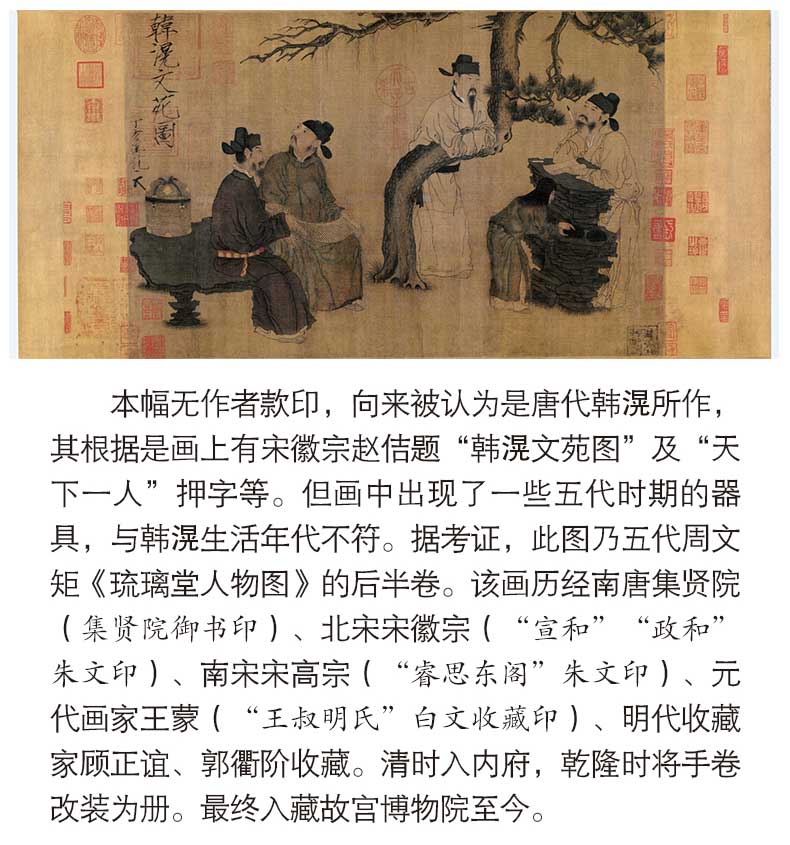 韓滉文苑圖
丁亥御札
天
本幅无作者款印，向来被认为是唐代韩滉所作，
其根据是画上有宋徽宗赵佶题“韩滉文苑图”及“天
下一人”押字等。但画中出现了一些五代时期的器
具，与韩滉生活年代不符。据考证，此图乃五代周文
矩《琉璃堂人物图》的后半卷。该画历经南唐集贤院
（集贤院御书印）、北宋宋徽宗（“宣和”“政和”
朱文印）、南宋宋高宗（“睿思东阁”朱文印）、元
代画家王蒙（“王叔明氏”白文收藏印）、明代收藏
家顾正谊、郭衢阶收藏。清时入内府，乾隆时将手卷
改装为册。最终入藏故宫博物院至今。